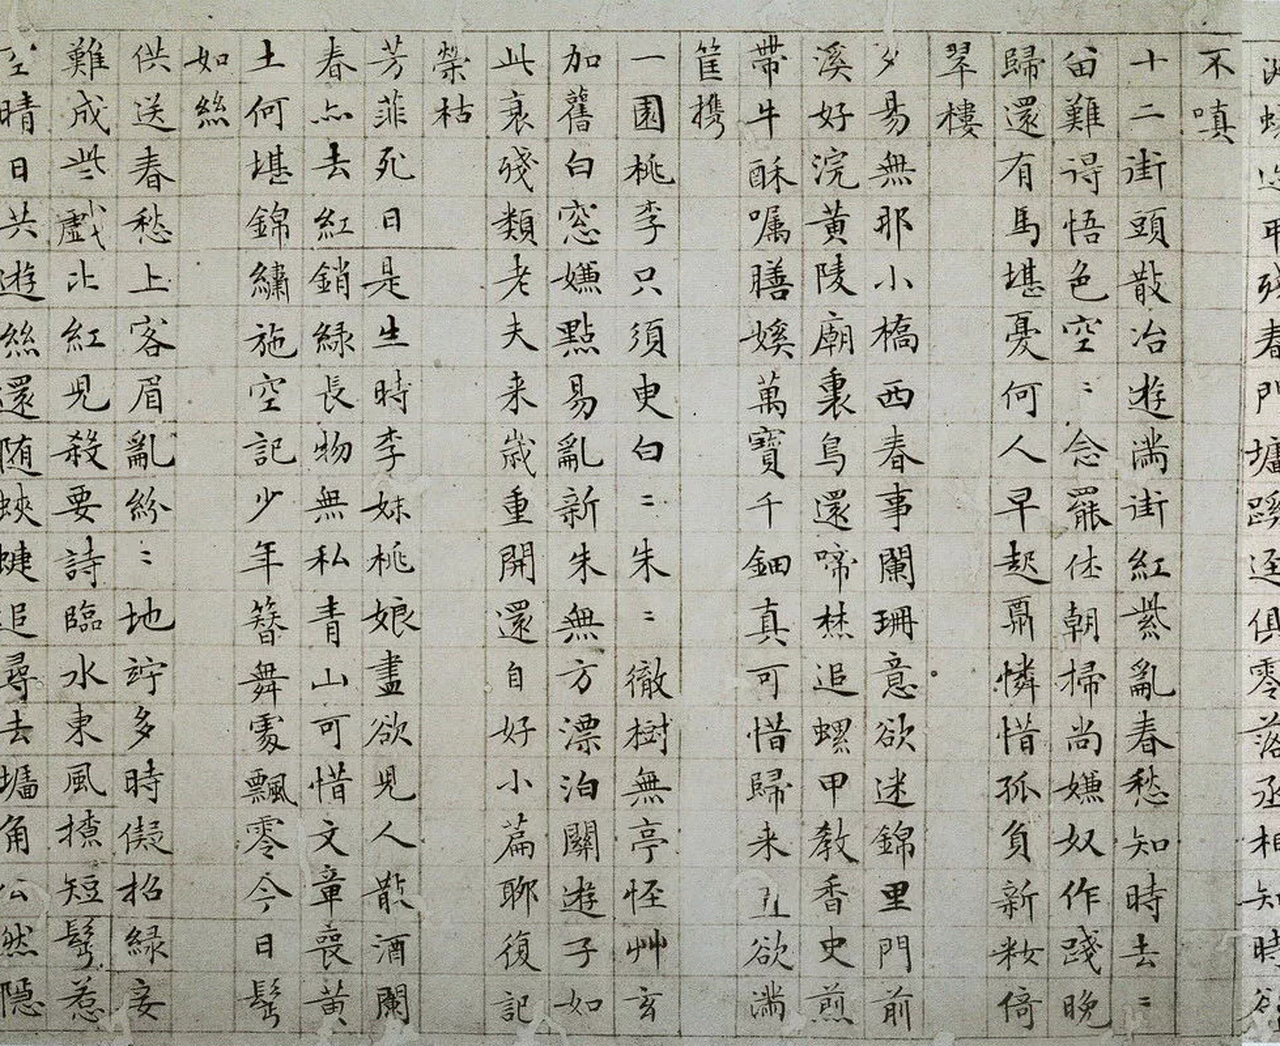 不嗔
十二街頭散冶遊滿街紅紫亂春愁知時去〻
畱難得悟色空〻念罷仗朝掃尚嫌奴作踐晚
歸還有馬堪憂何人早起最憐惜孤負新妝倚
翠樓
夕易無耶小橋西春事闌珊意欲迷錦里門前
溪好浣黃陵廟裏鳥還啼焚追螺甲教香史煎
帶牛酥嘱膳媛萬寶千鈿真可惜歸来直欲滿
筐携
一園桃李只須臾白〻朱〻徹樹無亭怪艸玄
加舊白窓嫌點易亂新朱無方漂泊關遊子如
此衰殘類老夫来歲重開還自好小篇聊復記
榮枯
芳菲死日是生時李妹桃娘盡欲児人散酒闌
春亦去紅銷緑長物無私青山可惜文章喪黃
土何堪錦繡施空記少年簪舞處飄零今日鬂
如絲
供送春愁上客眉亂紛〻地竚多時儗招緑妾
難成些戲比紅児殺要詩臨水東風撩短鬂惹
空晴日共遊絲還随蛺蜨追尋去墻角公然隱